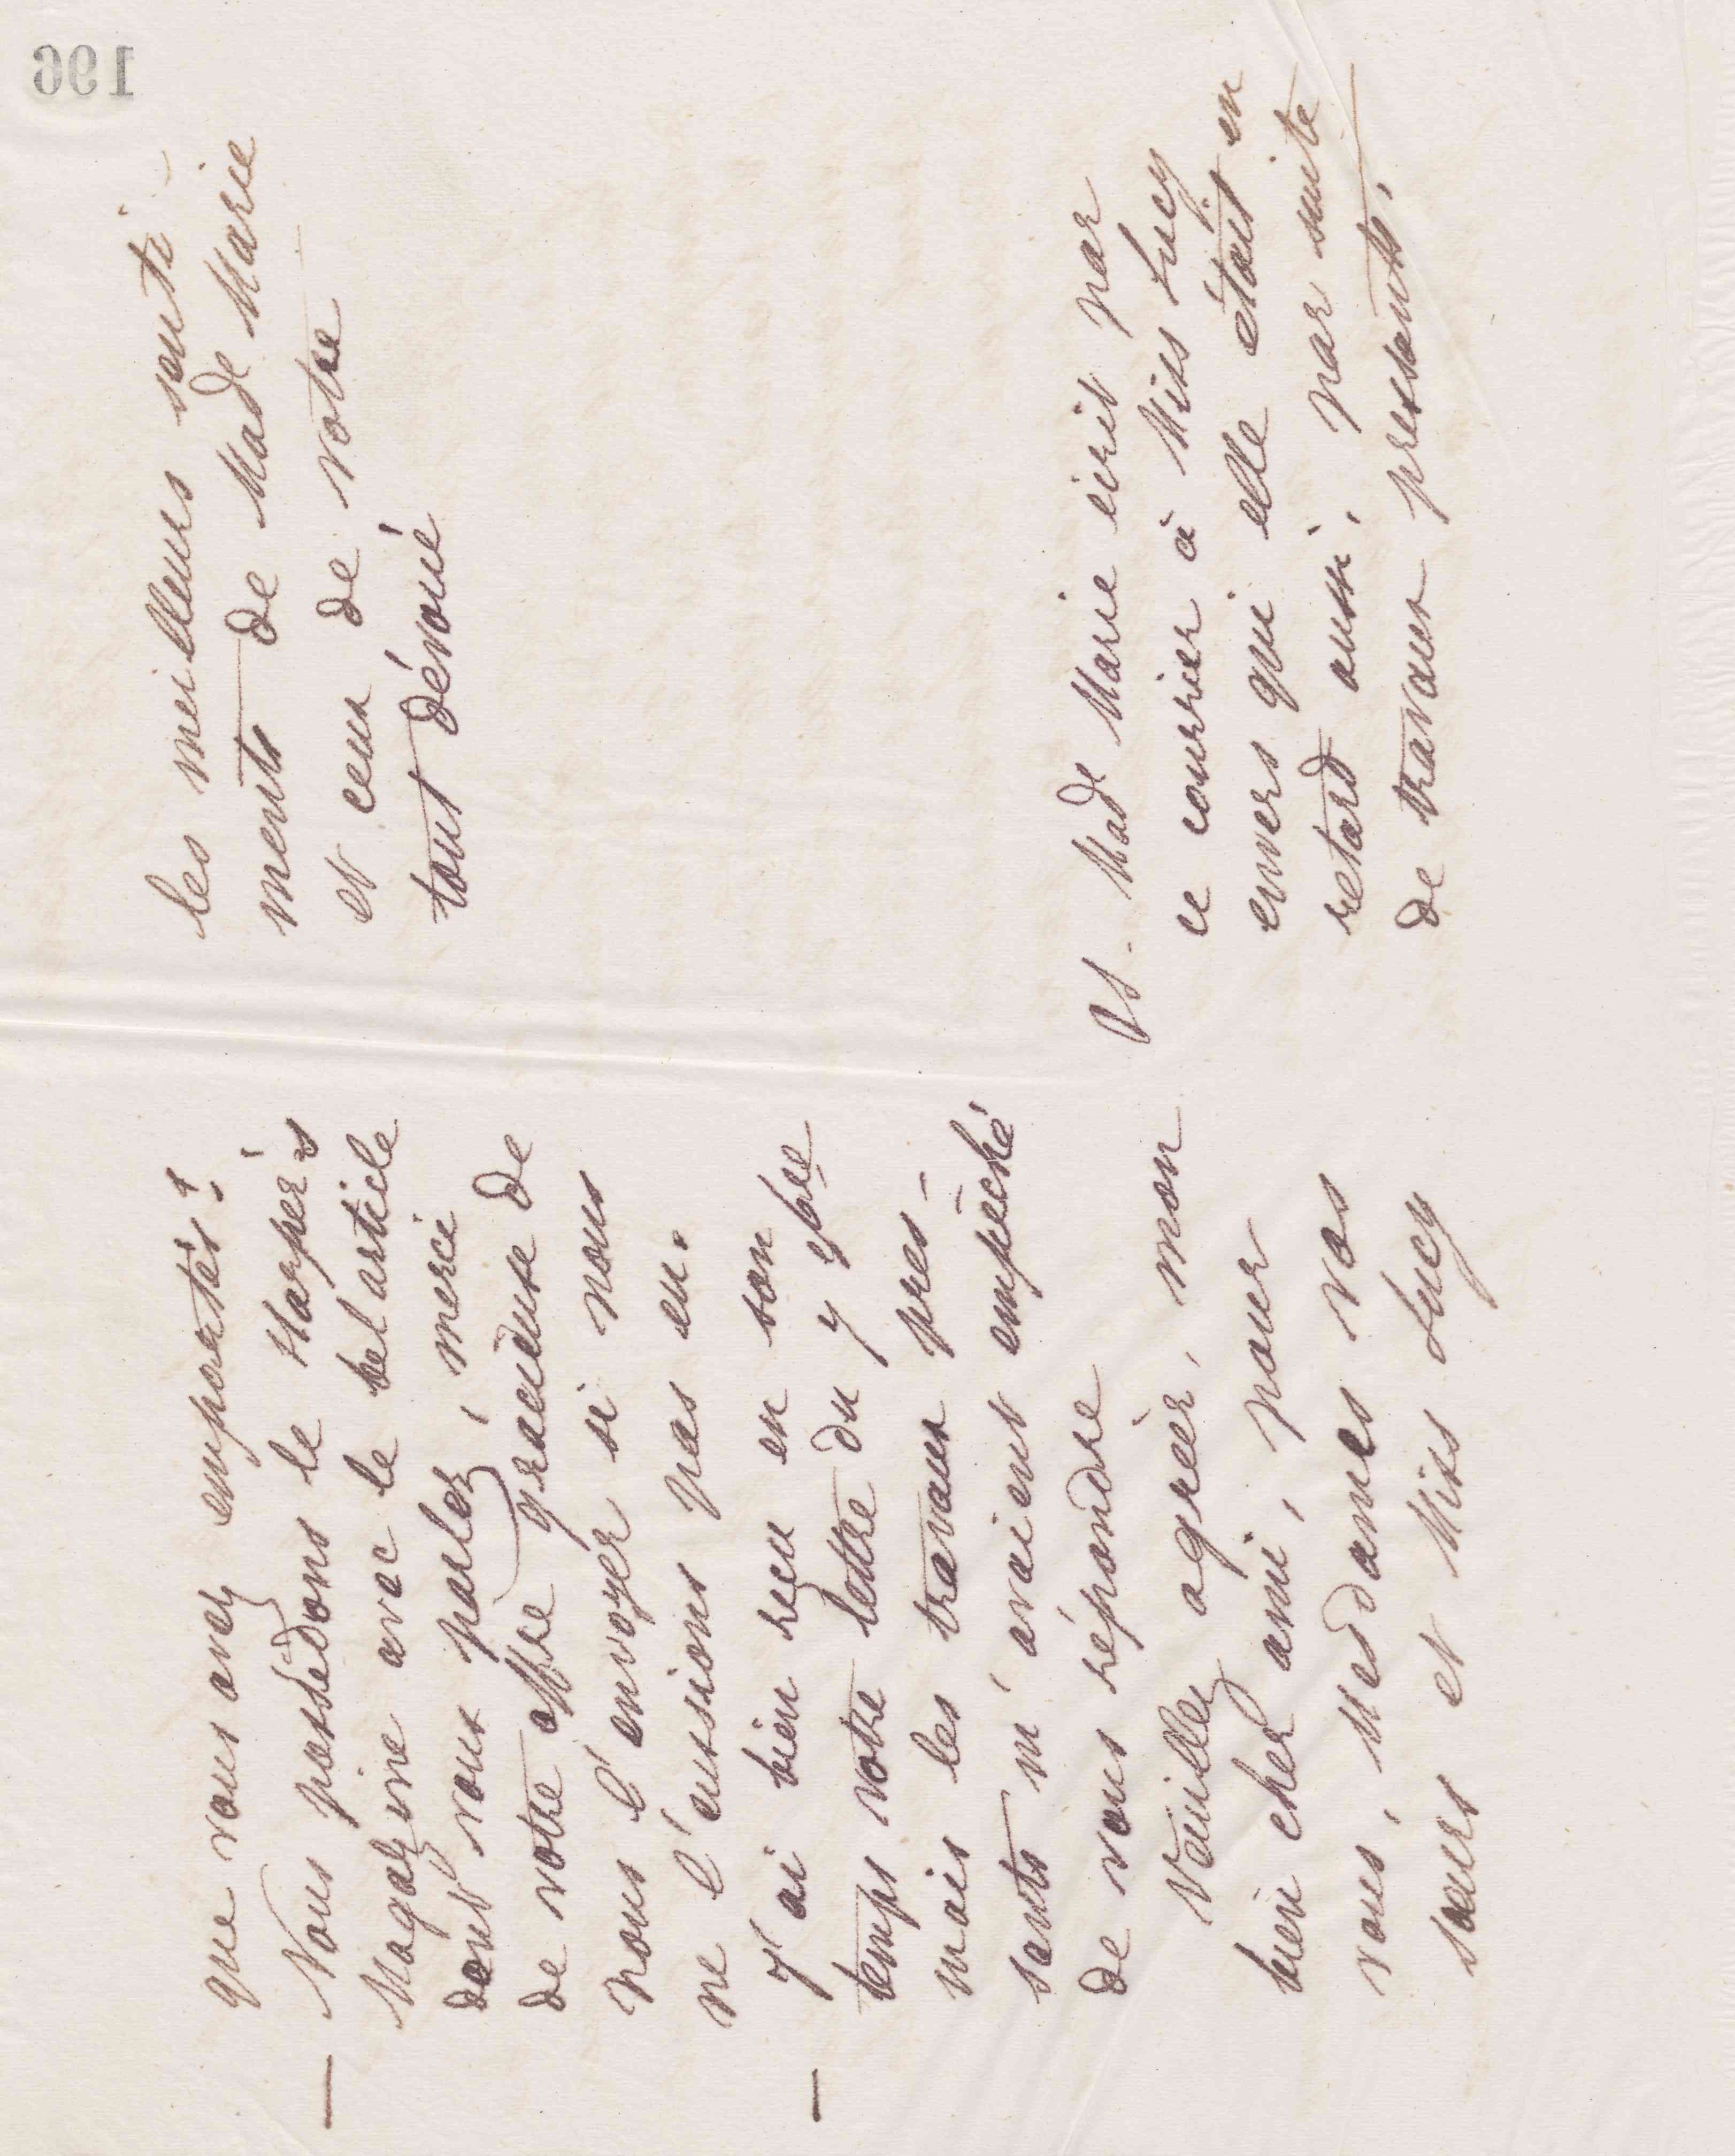 que vous avez emportés!
— Nous possédons le Harper's
Magazine avec le bel article
dont vous parlez, merci
de votre offre gracieuse de
nous l'envoyer si nous
ne l'eussions pas eu.
— J'ai bien reçu en son
temps votre lettre du 7 9bre
mais les travaux pres-
sants m'avaient empêché
de vous répondre
Veuillez agréer, mon
bien cher ami, pour
vous, Mesdames vos
sœurs et Miss Lucy
les meilleurs senti-
ments de Made Marie
et ceux de votre
tout dévoué
PS. Made Marie écrit par
ce courrier à Miss Lucy
envers qui elle était en
retard aussi, par suite
de travaux pressants.
196